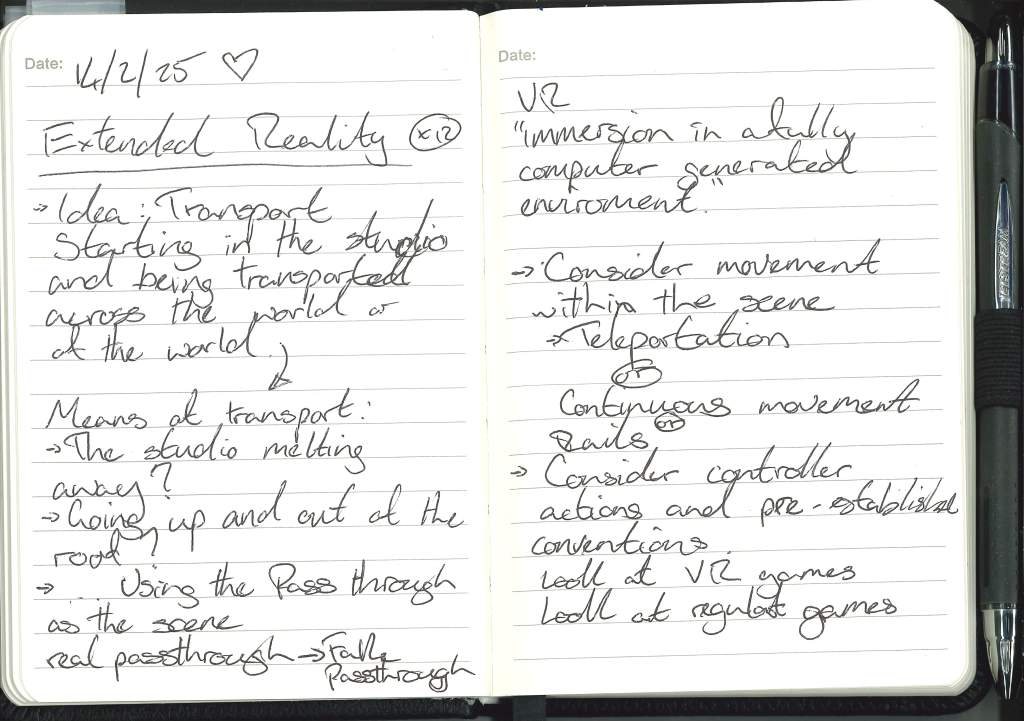 Date: 14/2/25 ♡
Extended Reality XR
→ Idea: Transport
Starting in the studio
and being transported
across the world or
at the world
Means of transport:
→ The studio melting
away?
→ Going up and out of the
roof?
→ ... Using the Pass through
as the scene
real passthrough → Fake
Passthrough
Date:
VR
"immersion in a fully
computer generated
enviroment."
→ Consider movement
within the scene
→ Teleportation
or
Continuous movement
or
Rails
→ Consider controller
actions and pre-established
conventions.
Look at VR games
Look at regular games